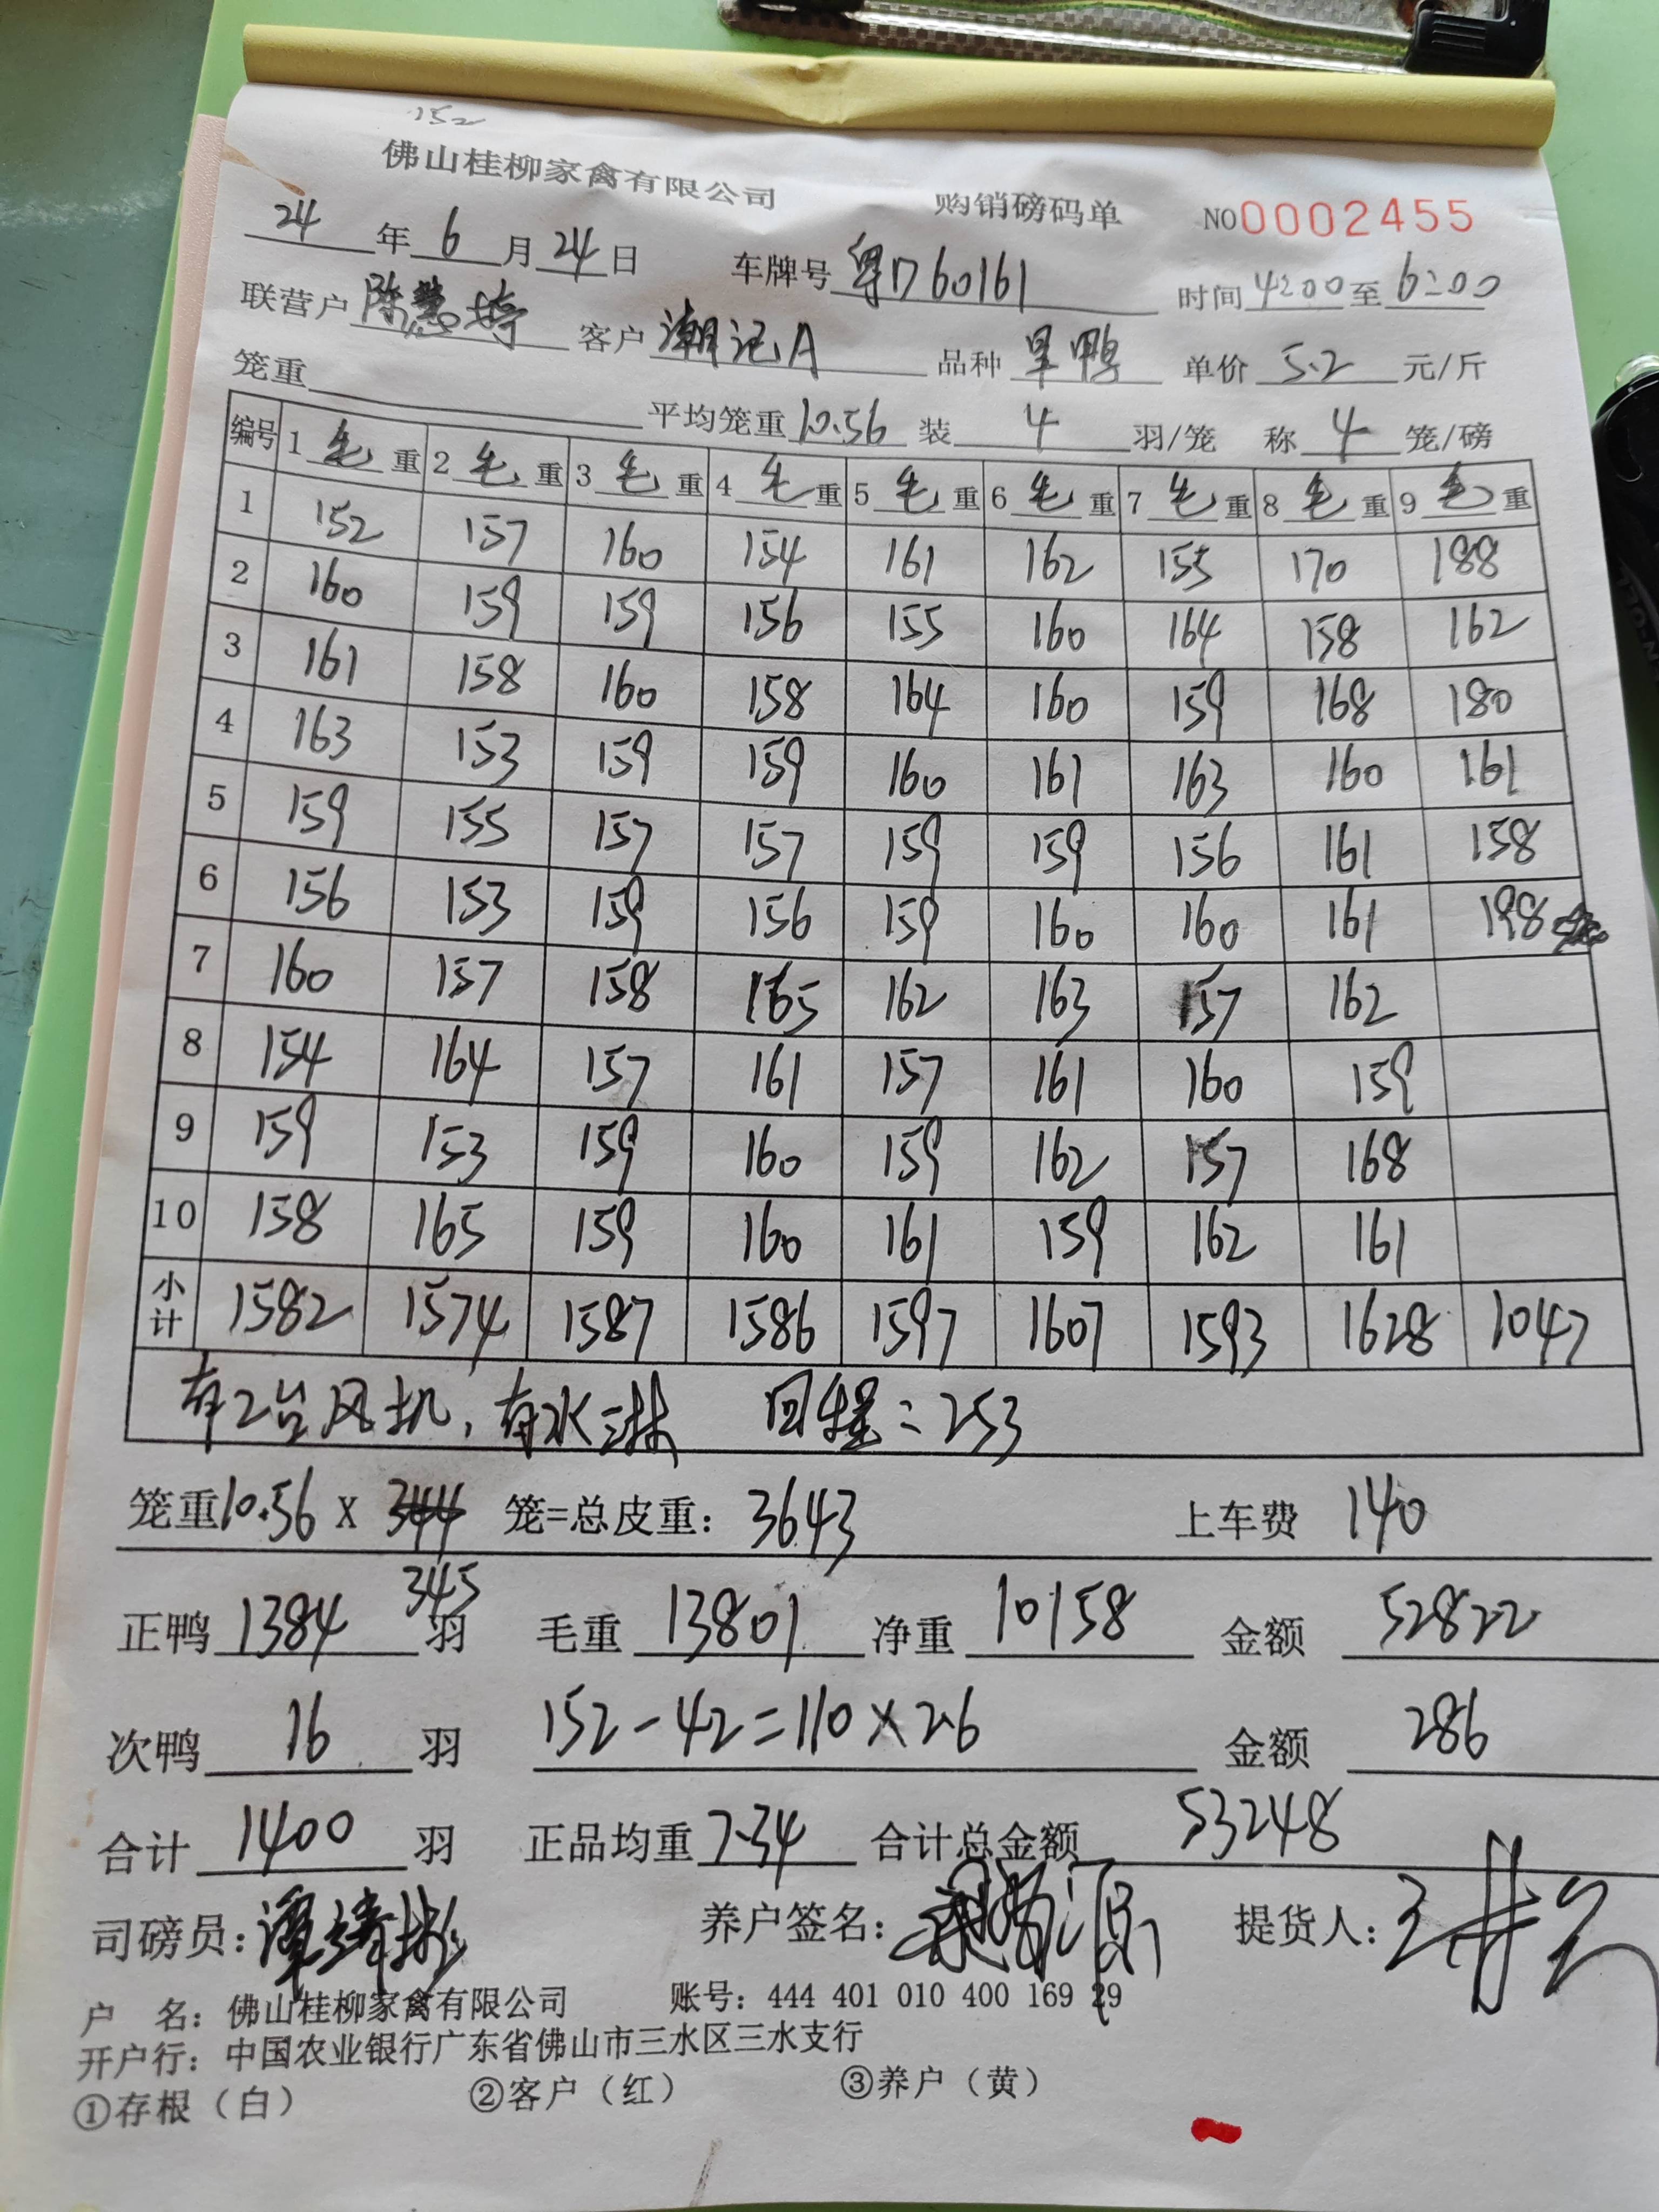 152
佛山桂柳家禽有限公司 购销磅码单 NO0002455
24年6月24日 车牌号 粤D60161 时间4:00至6:00
联营户 陈慧婷 客户 潮记A 品种 旱鸭 单价 5.2 元/斤
笼重 平均笼重10.56 装 4 羽/笼 称 4 笼/磅
编号 1 毛 重 2 毛 重 3 毛 重 4 毛 重 5 毛 重 6 毛 重 7 毛 重 8 毛 重 9 毛 重
1 152 157 160 154 161 162 155 170 188
2 160 159 159 156 155 160 164 158 162
3 161 158 160 158 164 160 159 168 180
4 163 153 159 159 160 161 163 160 161
5 159 155 157 157 159 159 156 161 158
6 156 153 159 156 159 160 160 161 198
7 160 157 158 165 162 163 157 162
8 154 164 157 161 157 161 160 159
9 159 153 159 160 159 162 157 168
10 158 165 159 160 161 159 162 161
小计 1582 1574 1587 1586 1597 1607 1593 1628 1047
有2台风机,有水淋 回程=253
笼重10.56 X 344 笼=总皮重: 3643 上车费 140
345
正鸭 1384 羽 毛重 13801 净重 10158 金额 52822
次鸭 16 羽 152-42=110×2.6 金额 286
合计 1400 羽 正品均重 7.34 合计总金额 53248
司磅员: 养户签名: 提货人:
户 名: 佛山桂柳家禽有限公司 账号: 444 401 010 400 169 29
开户行: 中国农业银行广东省佛山市三水区三水支行
①存根（白） ②客户（红） ③养户（黄）